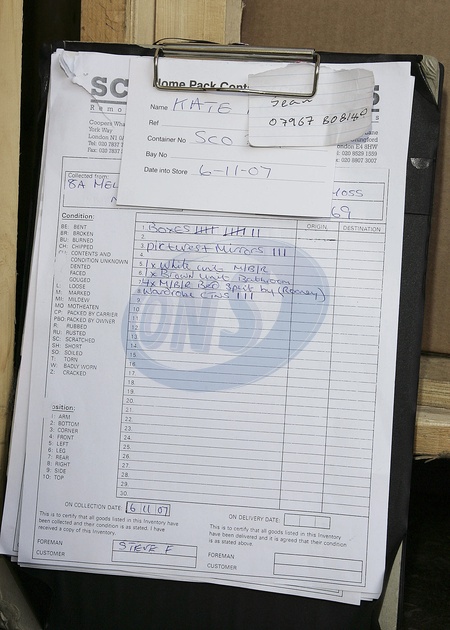 SC
S
Home Pack
Name KATE
Jean
07967 808140
Ref
Container No SCO
Bay No
Date into Store 6-11-07
York Way
London N1
Tel: 020
London E4 9HW
Collected from:
8A MEL
69
Condition:
ORIGIN
DESTINATION
BE: BENT
BR: BROKEN
BU: BURNED
CH: CHIPPED
CONTENTS AND
CONDITION UNKNOWN
DENTED
FACED
GOUGED
L: LOOSE
M: MARKED
MI: MILDEW
MO: MOTHEATEN
CP: PACKED BY CARRIER
PBO: PACKED BY OWNER
R: RUBBED
RU: RUSTED
SC: SCRATCHED
SH: SHORT
SO: SOILED
T: TORN
W: BADLY WORN
Z: CRACKED
1. Boxes
2.
3. pictures + Mirrors III
4.
5. 1x White unit M/B/R
6. 1x Brown unit Bathroom
7. 4x M/B/R Bed split by (Rooney)
8. Wardrobe III
9.
10.
11.
12.
13.
14.
15.
16.
17.
18.
19.
20.
21.
22.
23.
24.
25.
26.
27.
28.
29.
30.
osition:
1: ARM
2: BOTTOM
3: CORNER
4: FRONT
5: LEFT
6: LEG
7: REAR
8: RIGHT
9: SIDE
10: TOP
ON COLLECTION DATE: 6 11 07
ON DELIVERY DATE:
This is to certify that all goods listed in this Inventory
have been collected and their condition is as stated. I have
received a copy of this Inventory.
This is to certify that all goods listed in this Inventory
have been delivered and it is agreed that their condition
is as stated above.
FOREMAN STEVE F
CUSTOMER
FOREMAN
CUSTOMER